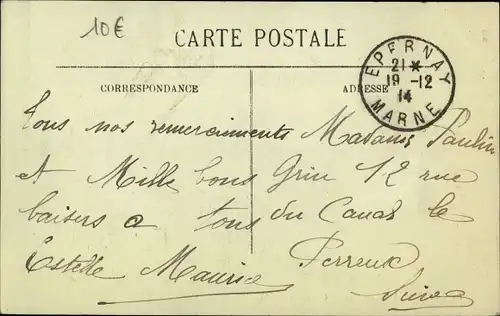 10€
CARTE POSTALE
CORRESPONDANCE
ADRESSE
EPERNAY
21*
19-12
14
MARNE
Tous nos remerciments
et Mille bons
baisers a tous
Estelle Maurice
Madame Paulin
Grin 12 rue
du Canal le
Perreux
Seine